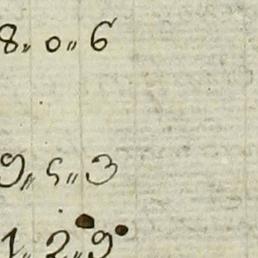 8,, 0,, 6
9,, 5,, 3
1,, 2,, 9